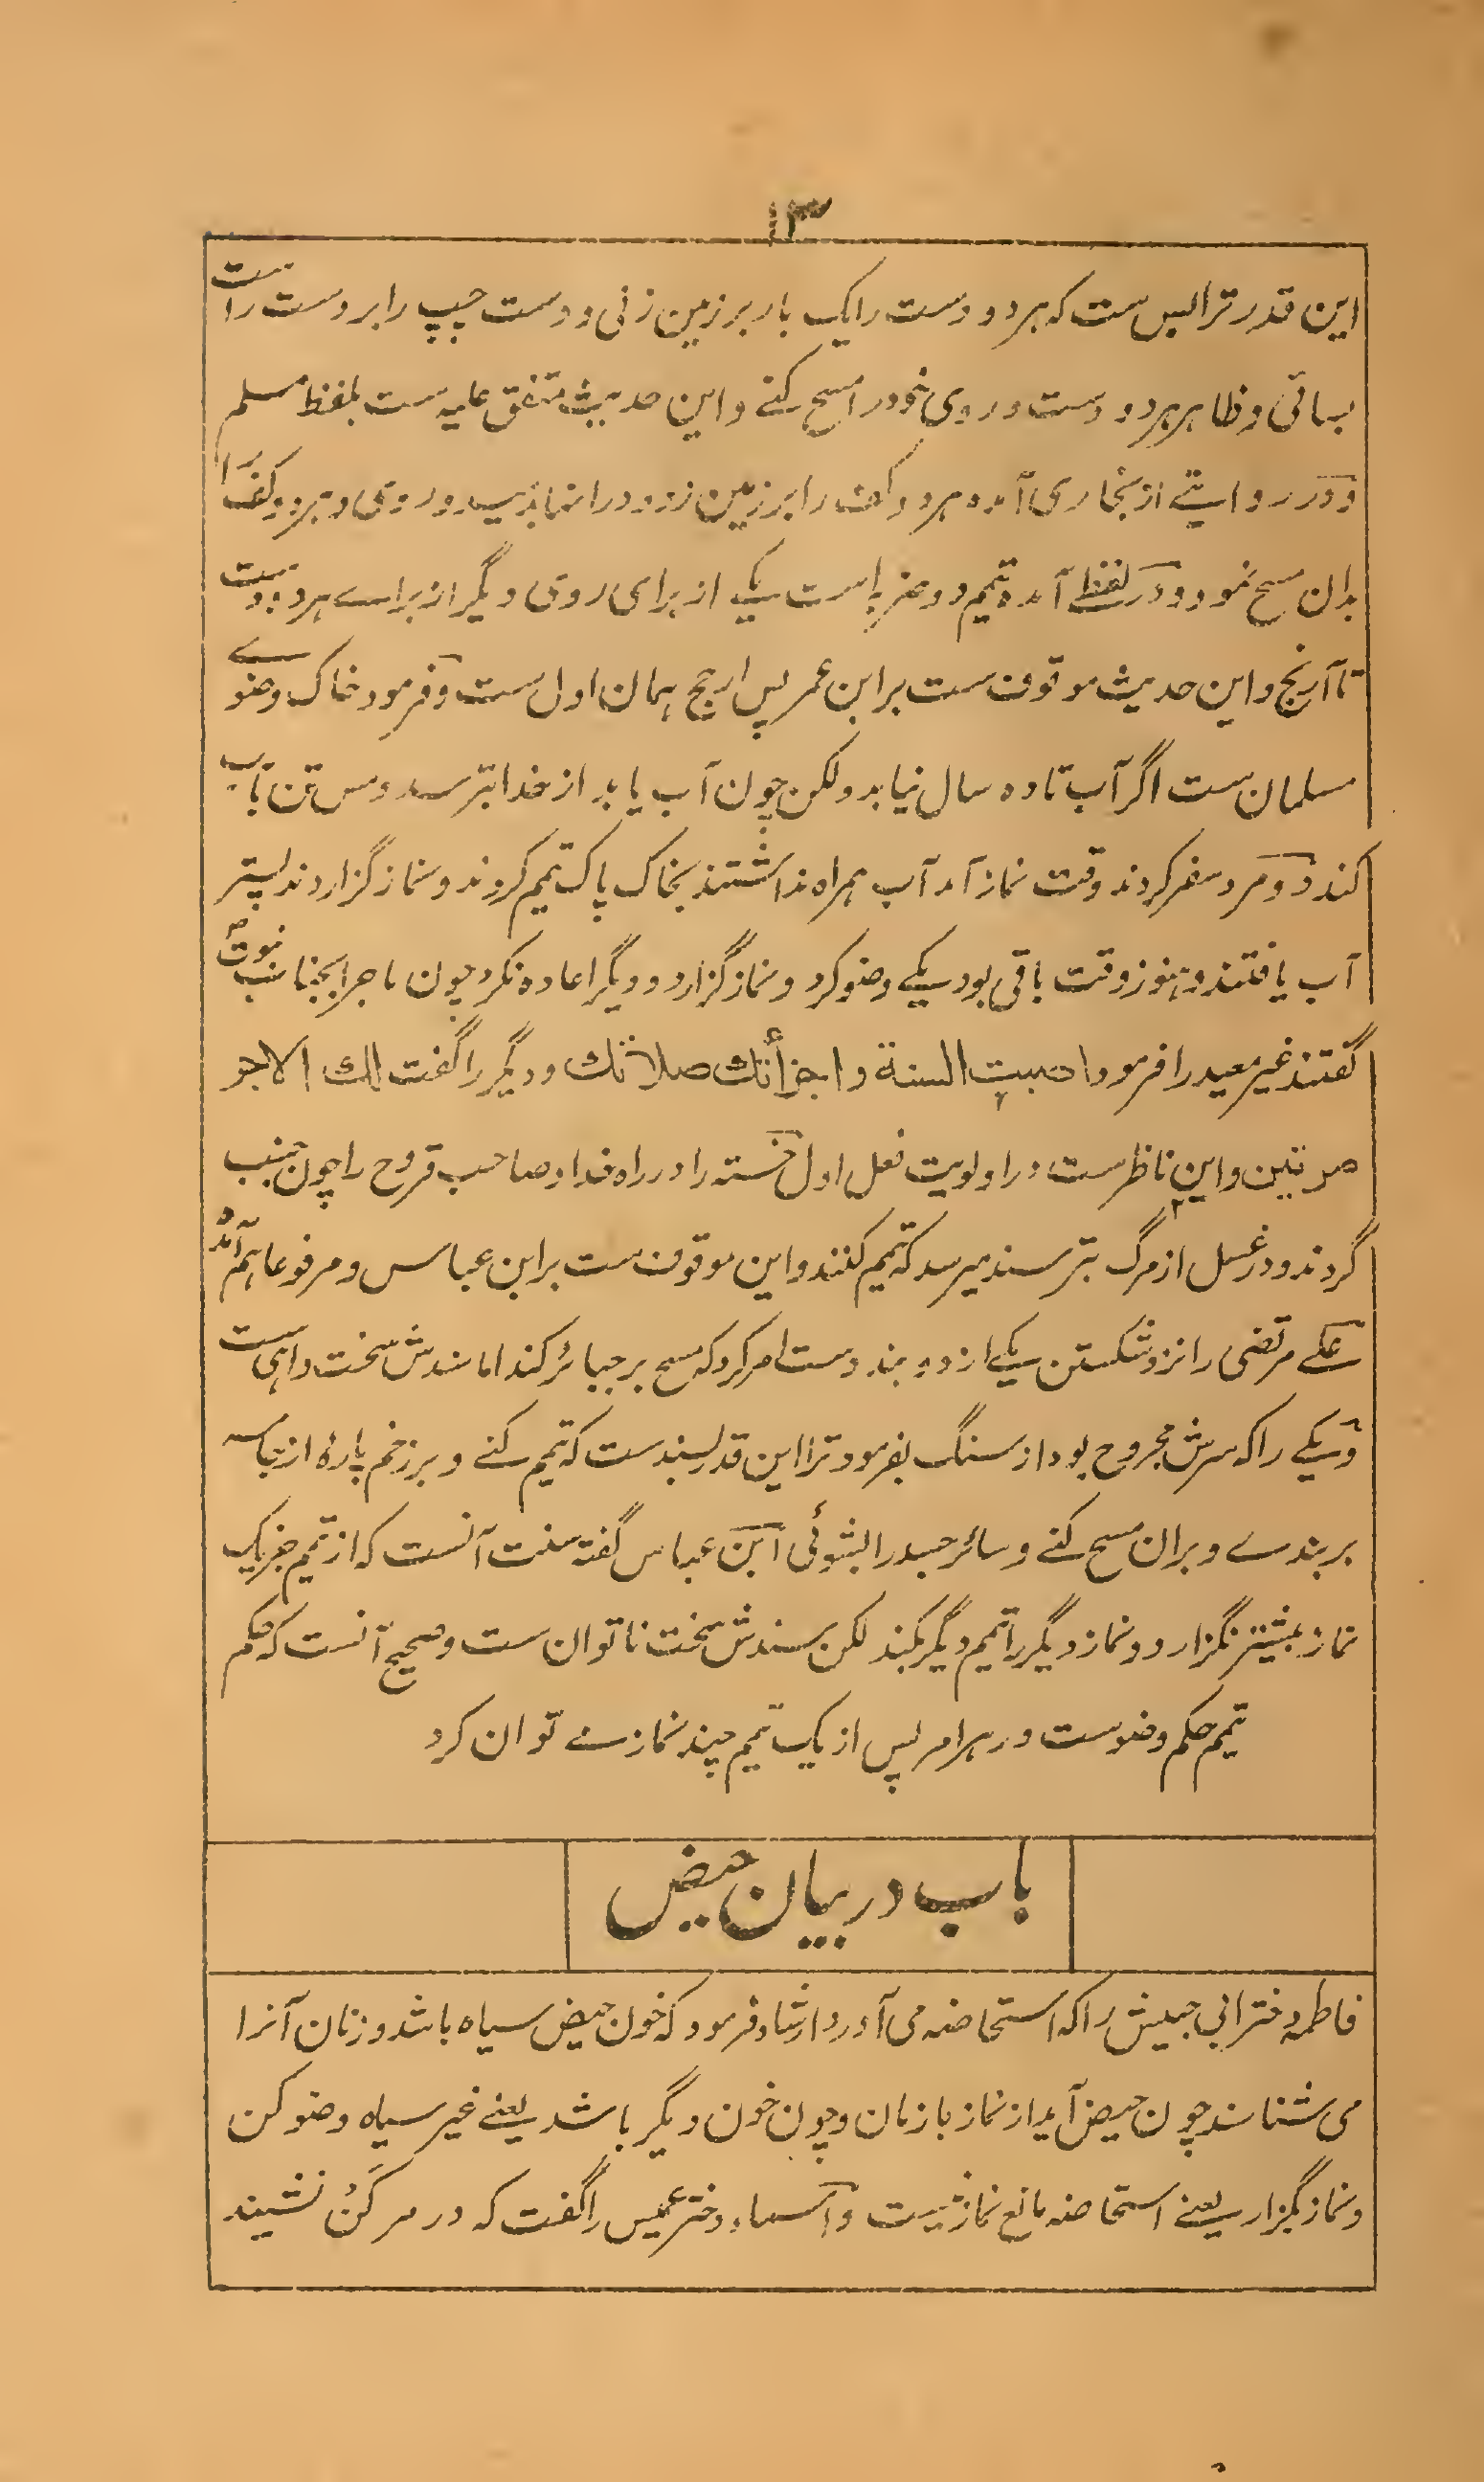 ۱۳
این قدر ترا بس ست که هر دو دست را یک بار بر زمین زنی و دست چپ را بر دست راست
بسائی و ظاهر هر دو دست و روی خود را مسح کنے و این حدیث متفق علیه ست بلفظ مسلم
و در روایتے از بخاری آمده هر دو کف را بر زمین زد و در انها بدمید و روی و هر دو کف را
بدان مسح نمود و در لفظے آمده تیمم دو ضربه است یکے از برای روی و دیگر از برای هر دو دست
تا آرنج و این حدیث موقوف ست بر ابن عمر پس ارجح همان اول ست و فرمود خاک وضوے
مسلمان ست اگر آب تا ده سال نیابد ولکن چون آب یابد از خدا بترسد و مس تن بآب
کند دو مرد سفر کردند وقت نماز آمد آب همراه نداشتند بخاک پاک تیمم کردند و نماز گزاردند پستر
آب یافتند و هنوز وقت باقی بود یکے وضو کرد و نماز گزارد و دیگر اعاده نکرد چون ماجرا بجناب نبوت
گفتند غیر معید را فرمود اصبت السنة و اجزأتك صلاتك و دیگر را گفت لك الاجر
مرتین و این ناظرست در اولویت فعل اول خسته را در راه خدا و صاحب قروح را چون جنب
گردند و در غسل از مرگ بترسند میرسد که تیمم کنند و این موقوف ست بر ابن عباس و مرفوعا هم آمده
علے مرتضی را نزد شکستن یکے از دو بند دست امر کرد که مسح بر جبائر کند اما سندش سخت واہی ست
و یکے را که سرش مجروح بود از سنگ بفرمود ترا این قدر بسندست که تیمم کنے و بر زخم پارۀ از جامه
بربندے و بران مسح کنے و سائر جسد را بشوئی ابن عباس گفته سنت آنست که از تیمم جز یک
نماز بیشتر نگزارد و نماز دیگر را تیمم دیگر بکند لکن سندش سخت ناتوان ست و صحیح آنست که حکم
تیمم حکم وضوست در هر امر پس از یک تیمم چند نماز مے توان کرد
باب در بیان حیض
فاطمه دختر ابی حبیش را که استحاضه می آورد ارشاد فرمود که خون حیض سیاه باشد و زنان آنرا
می شناسند چون حیض آید از نماز باز مان و چون خون دیگر باشد یعنے غیر سیاه وضو کن
و نماز بگزار یعنے استحاضه مانع نماز نیست و اسماء دختر عمیس را گفت که در مرکنُ نشیند